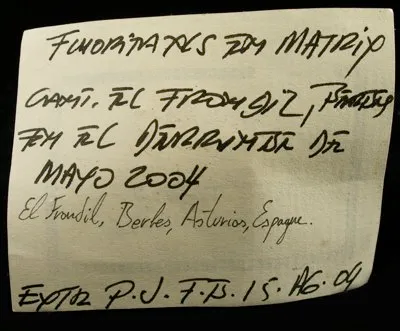 FLUORITA XLS EN MATRIX
CANT. EL FRONDIL, BERBES
EN EL DERRUMBE DE
MAYO 2004
El Frondil, Berbes, Asturias, Espagne.
EXTR P.J.F.B. 15. AG. 04